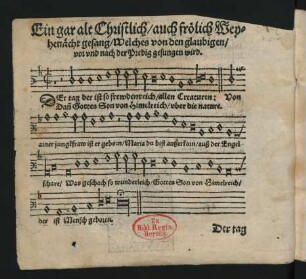 Ein gar alt Christlich/auch frölich Wey-
henächt gesang/Welches von den glaubigen/
vor vnd nach der Predig gesungen wird.
DEr tag der ist so frewdenreich/allen Creaturen: Von
Dañ Gottes Son von Himelreich/vber die nature.
ainer jungkfraw ist er geborn/Maria du bist außerkorn/auß der Engel
schare/Was geschach so wunderleich/Gottes Son von Himelreich/
der ist Mensch geborn.
Ex
Bibl. Regia
Berolin.
Der tag